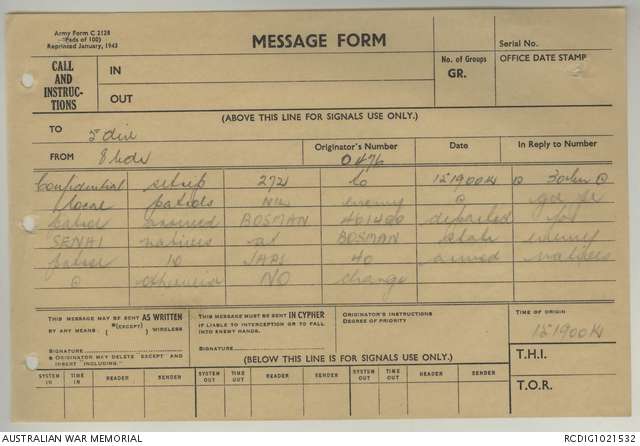 Army Form C 2128
(Pads of 100)
Reprinted January, 1943
MESSAGE FORM
Serial No.
CALL AND INSTRUCTIONS
IN
No. of Groups
GR.
OFFICE DATE STAMP
OUT
(ABOVE THIS LINE FOR SIGNALS USE ONLY.)
TO 5 div
FROM 8 bde
Originator's Number
0476
Date
In Reply to Number
Confidential sitrep 272 to 151900K @
patrols NIL enemy @
patrol BOSMAN departed for
SENAI natives at BOSMAN state enemy
10 JAPS 40 armed natives
@ otherwise NO change
THIS MESSAGE MAY BE SENT AS WRITTEN
BY ANY MEANS. (*EXCEPT) WIRELESS
SIGNATURE
* ORIGINATOR MAY DELETE EXCEPT AND INSERT INCLUDING."
THIS MESSAGE MUST BE SENT IN CYPHER
IF LIABLE TO INTERCEPTION OR TO FALL INTO ENEMY HANDS.
SIGNATURE
ORIGINATOR'S INSTRUCTIONS
DEGREE OF PRIORITY
TIME OF ORIGIN
151900K
(BELOW THIS LINE IS FOR SIGNALS USE ONLY.)
T.H.I.
SYSTEM IN TIME IN READER SENDER SYSTEM OUT TIME OUT READER SENDER SYSTEM OUT TIME OUT READER SENDER
T.O.R.
AUSTRALIAN WAR MEMORIAL
RCDIG1021532